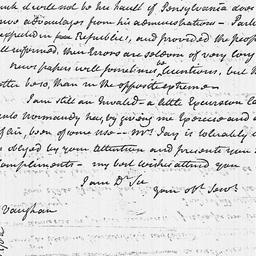 would not be her fault if Pensylvania does
two advantages from his administration —
in free Republics, and provided the people
well informed, their Errors are seldom of very long
news papers will sometimes be licentious, but
better so, than in the opposite extreme —
I am still an Invalid — a little Excursion
into Normandy has, by giving me Exercise and
of air, been of some use — Mrs. Jay is tolerably
obliged by your attention and presents you
Compliments — my best wishes attend you
I am Dr Sir
your obt. Servt.
Vaughan